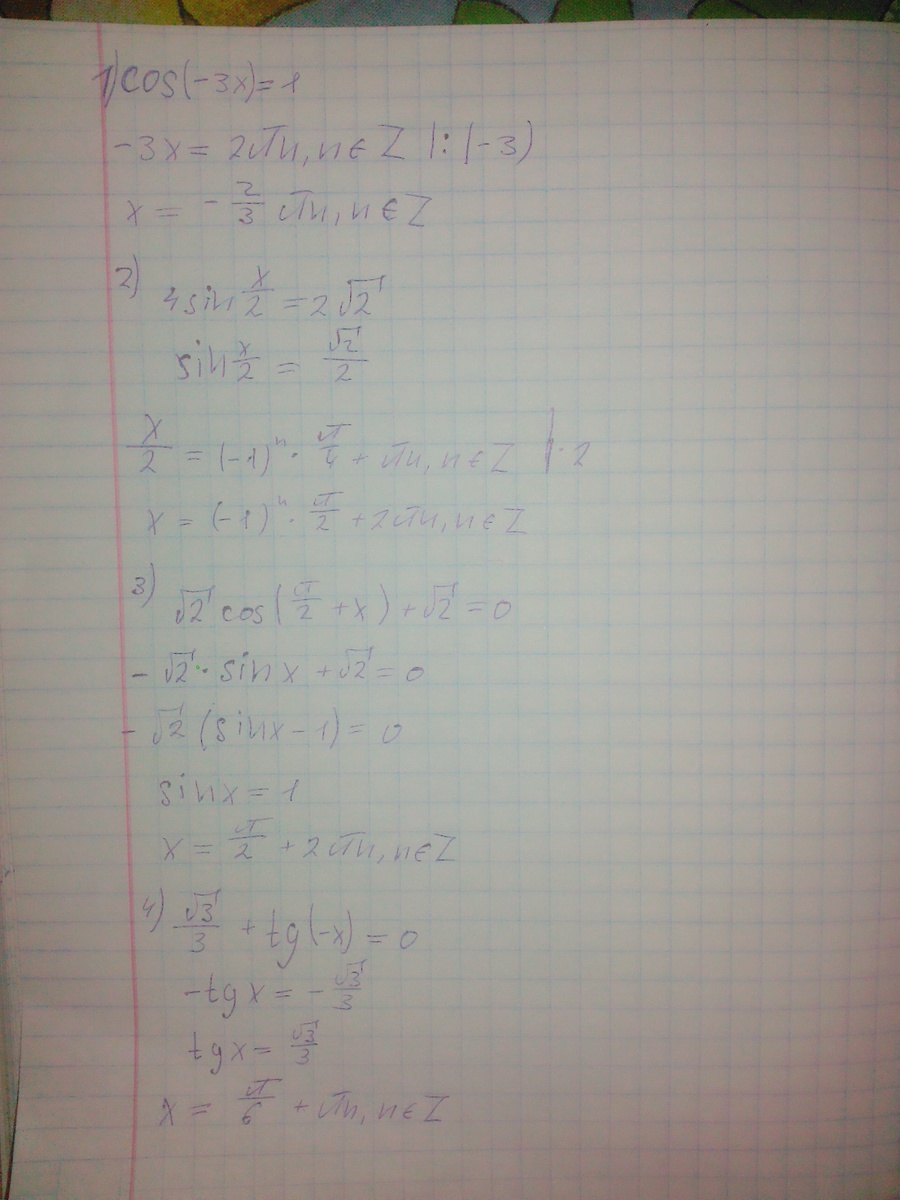 1) cos(-3x) = 1
-3x = 2πn, n∈Z |:(-3)
x = - 2/3 πn, n∈Z
2) 4 sin x/2 = 2√2
sin x/2 = √2/2
x/2 = (-1)ⁿ · π/4 + πn, n∈Z |·2
x = (-1)ⁿ · π/2 + 2πn, n∈Z
3) √2 cos(π/2 + x) + √2 = 0
- √2 · sin x + √2 = 0
- √2 (sin x - 1) = 0
sin x = 1
x = π/2 + 2πn, n∈Z
4) √3/3 + tg(-x) = 0
-tg x = - √3/3
tg x = √3/3
x = π/6 + πn, n∈Z